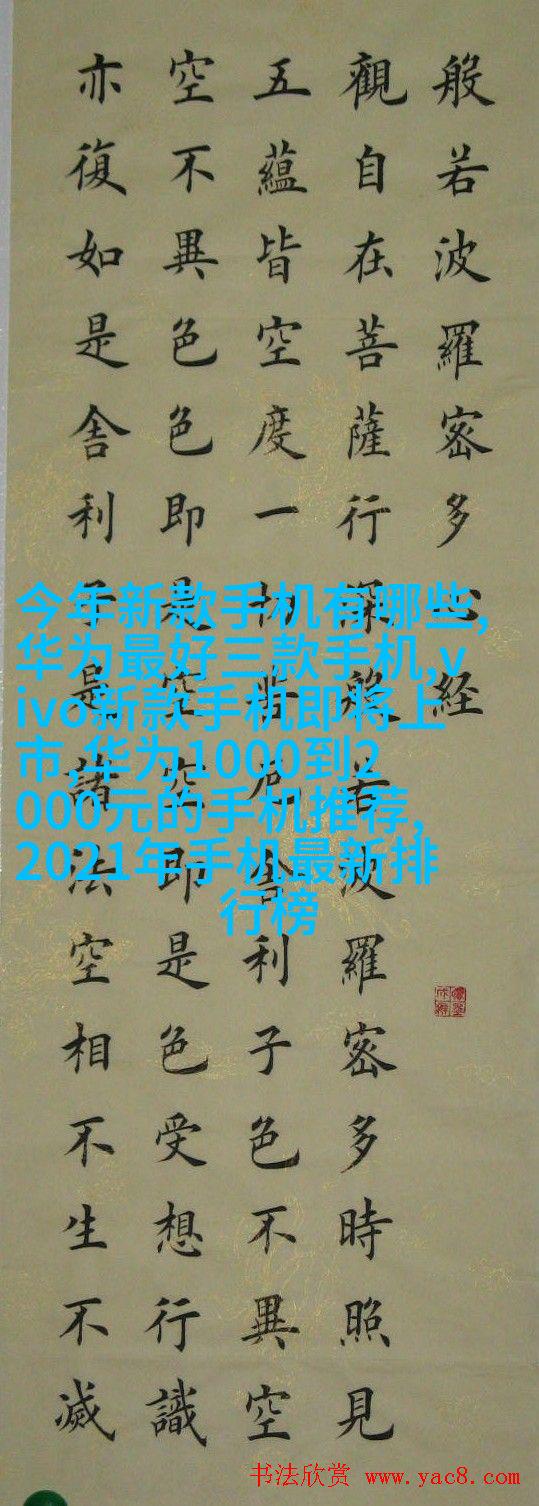 般若波羅密多心经
觀自在菩薩行深般若波羅密多時照見
五蘊皆空度一切苦厄舍利子色不異空
空不異色色即是空空即是色受想行識
亦復如是舍利子是諸法空相不生不滅
今年新款手机有哪些,
华为最好三款手机,v
ivo新款手机即将上
市,华为1000到2
000元的手机推荐,
2021年手机最新排
行榜
书法欣赏 www.yac8.com